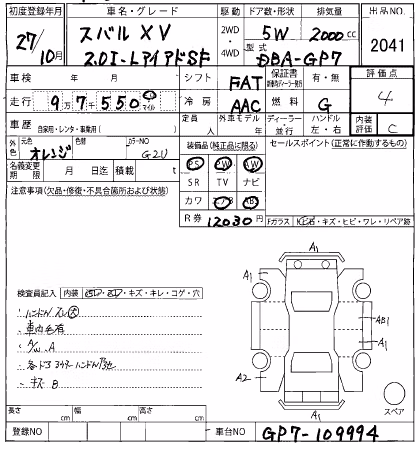 初度登録年月 車名・グレード 駆動 ドア数・形状 排気量 出品NO.
27/10月 スバル XV 2WD・4WD 5W 2000cc 2041
2.0I-Lアイサイト 型式 DBA-GP7
車検 年 月 シフト FAT 保証書 有・無 評価点
走行 9万7千550 冷房 AAC 燃料 G 4
車歴 自家用・レンタ・事業用( ) 定員 人 外車モデル 年 ディーラー・並行 ハンドル 左・右 内装評価 C
外色 元色 オレンジ 色替 カラーNO G2U 装備品(純正品に限る) セールスポイント(正常に作動するもの)
名義変更期限 月 日迄 積載 t PS PW AW
注意事項(欠品・修復・不具合箇所および状態) SR TV ナビ
カワ エアB ABS
R券 12030円 Fガラス トビ石・キズ・ヒビ・ワレ・リペア跡
A1
A1
検査員記入 内装 ・キズ・キレ・コゲ・穴
ハンドルスレ大
車内毛有 AB1
A/W A A1
A2
キズB
A1
スペア
長さ cm 幅 cm 高さ cm
登録NO 車台NO GP7-109994